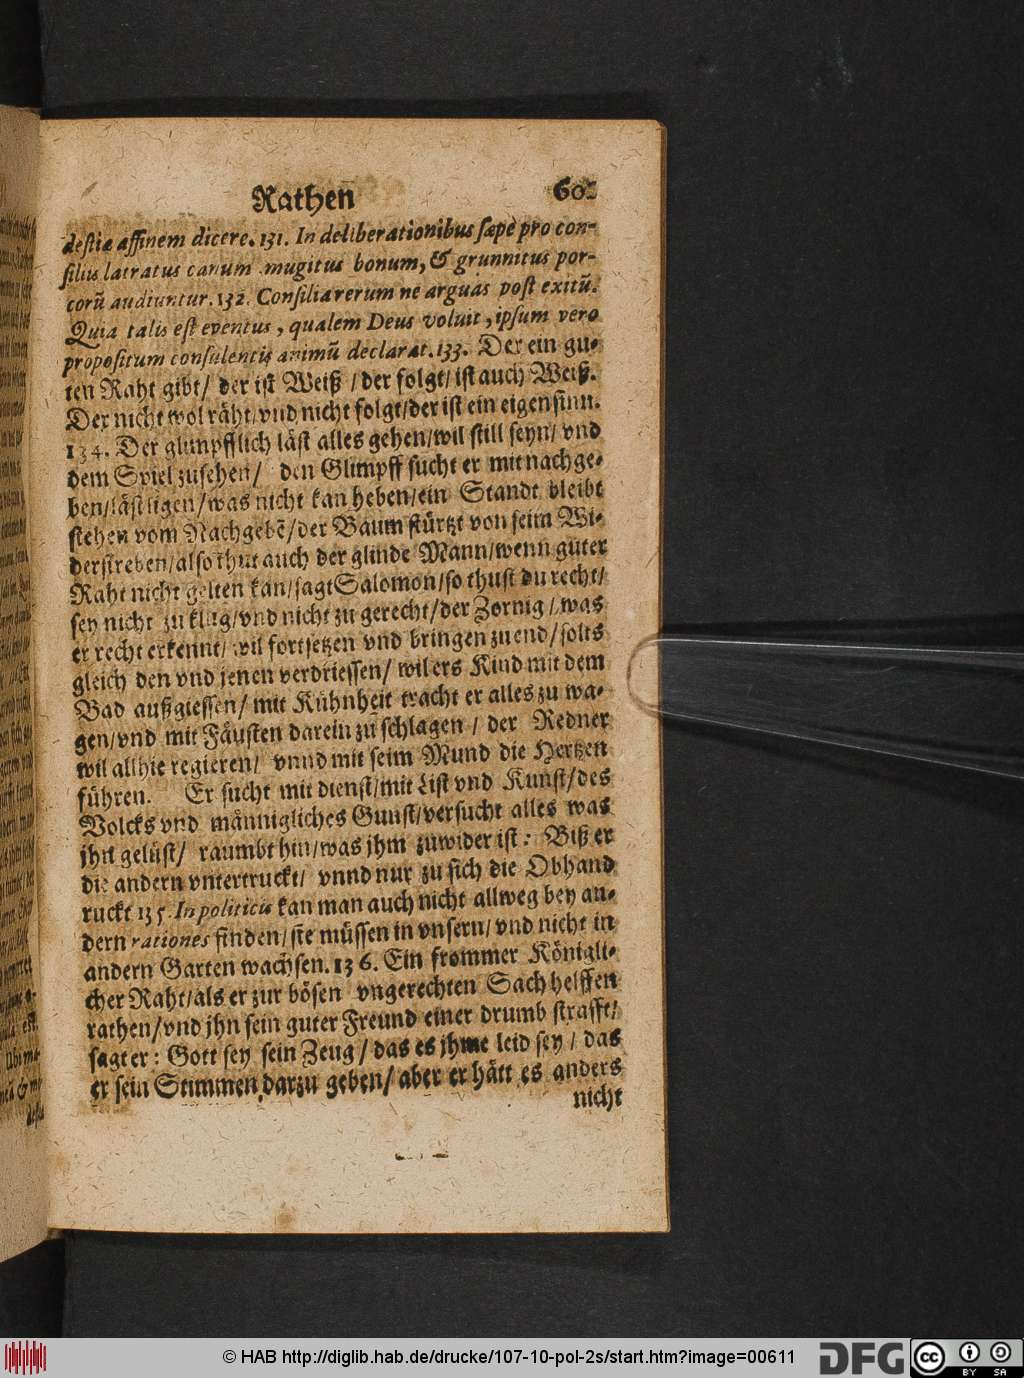 Rathen 60
destiæ affinem dicere. 131. In deliberationibus sæpè pro con-
siliis latratus canum mugitus bonum, & grunnitus por-
corũ audiuntur. 132. Consilia rerum ne arguas post exitũ.
Quia talis est eventus, qualem Deus voluit, ipsum vero
propositum consulentis animũ declarat. 133. Der ein gu-
ten Raht gibt/ der ist Weiß / der folgt/ ist auch Weiß.
Der nicht wol räht/ vnd nicht folgt/ der ist ein eigensinn.
134. Der glimpfflich läst alles gehen/ wil still seyn/ vnd
dem Spiel zusehen/ den Glimpff sucht er mit nachge-
ben/ läst ligen/ was nicht kan heben/ ein Standt bleibt
stehen vom Nachgebẽ/ der Baum stürtzt von seim Wi-
derstreben/ also thut auch der glinde Mann/ wenn guter
Raht nicht gelten kan/ sagt Salomon/ so thust du recht/
sey nicht zu klug/ vnd nicht zu gerecht/ der Zornig / was
er recht erkennt/ wil fortsetzen vnd bringen zu end/ solts
gleich den vnd jenen verdriessen/ wil ers Kind mit dem
Bad außgiessen/ mit Kühnheit tracht er alles zu wa-
gen/ vnd mit Fäusten darein zu schlagen / der Redner
wil allhie regieren/ vnnd mit seim Mund die Hertzen
führen. Er sucht mit dienst/ mit List vnd Kunst/ des
Volcks vnd männigliches Gunst/ versucht alles was
jhn gelüst/ raumbt hin/ was jhm zuwider ist: Biß er
die andern vntertruckt/ vnnd nur zu sich die Obhand
ruckt 135. In politicis kan man auch nicht allweg bey an-
dern rationes finden/ sie müssen in vnsern/ vnd nicht in
andern Garten wachsen. 136. Ein frommer Königli-
cher Raht/ als er zur bösen vngerechten Sach helffen
rathen/ vnd jhn sein guter Freund einer drumb strafft/
sagt er: Gott sey sein Zeug / das es jhme leid sey / das
er sein Stimmen darzu geben/ aber er hätt es anders
nicht
© HAB http://diglib.hab.de/drucke/107-10-pol-2s/start.htm?image=00611
DFG
cc BY SA